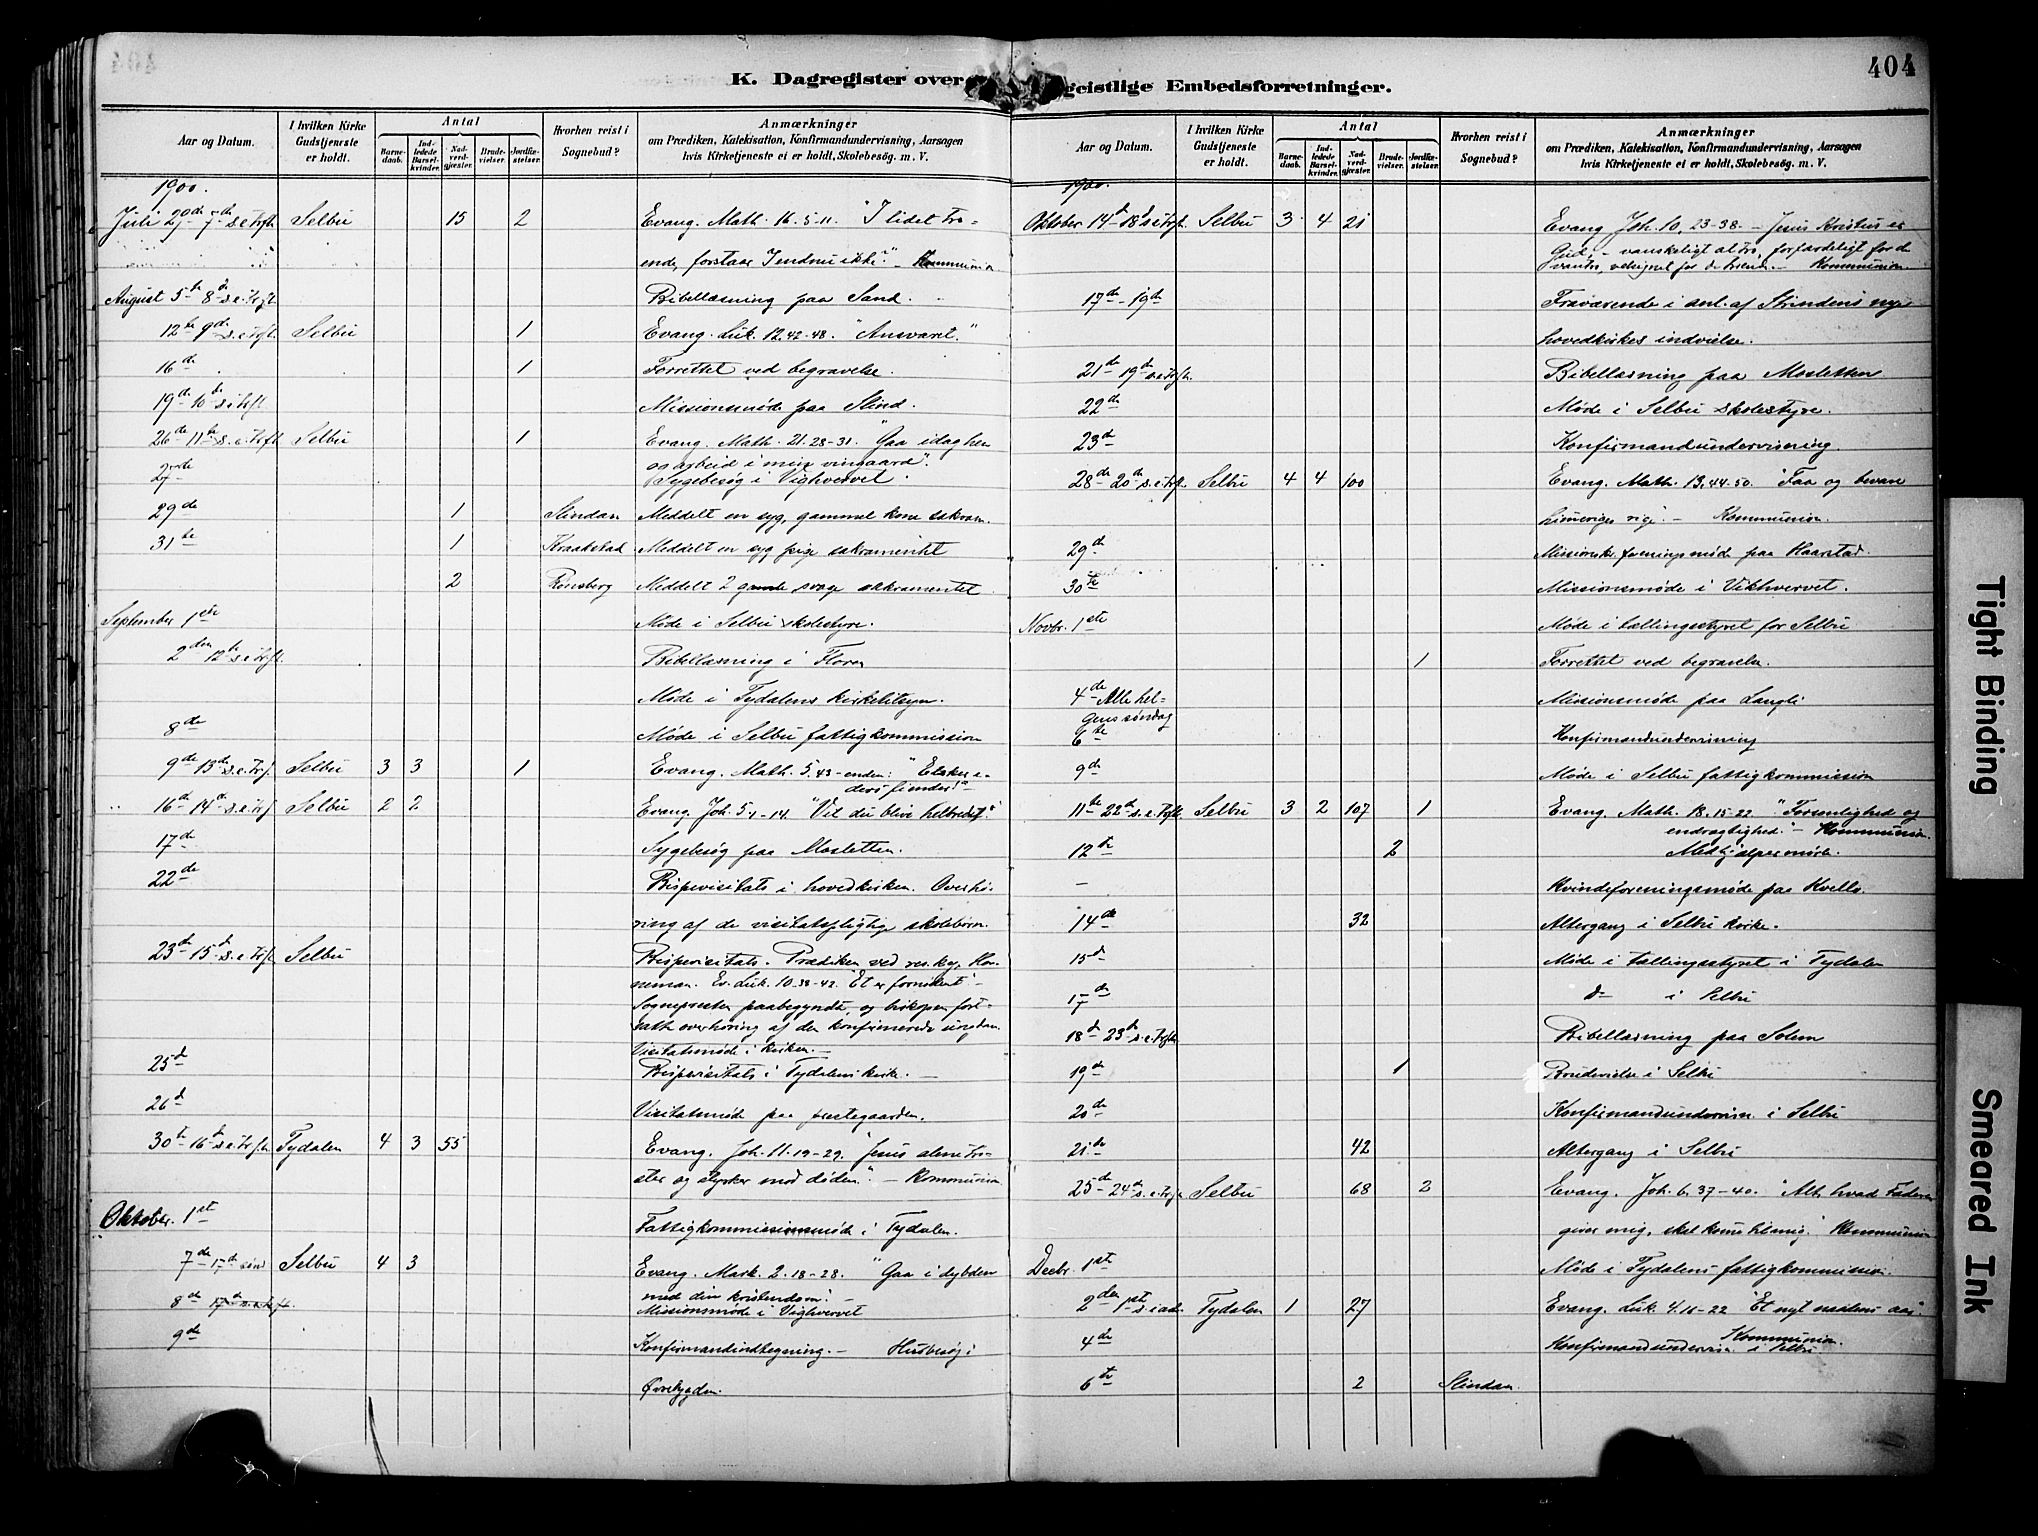 404
K. Dagregister over geistlige Embedsforretninger.
Aar og Datum.
I hvilken Kirke Gudstjeneste er holdt.
Antal
Barnedaab.
Indledede Barselkvinder.
Nadverdgjæster.
Brudevielser.
Jordfæstelser.
Hvorhen reist i Sognebud?
Anmærkninger
om Prædiken, Katekisation, Konfirmandundervisning, Aarsagen
hvis Kirketjeneste ei er holdt, Skolebesög. m. V.
1900.
Juli 29de 7de s.e.Trft. Selbu 15 2 Evang. Math. 16. 5-11. "I lidet tro-
ende, forstaar I endnu ikke". - Kommunion
August 5te 8de s.e.Trft. Bibellæsning paa Sand.
12te 9de s.e.Trft. Selbu 1 Evang. Luk. 12. 42-48. "Ansvaret."
16de 1 Forrettet ved begravelse.
19de 10de s.e.Trft. Missionsmøde paa Slind.
26de 11te s.e.Trft. Selbu 1 Evang. Math. 21. 28-31. "Gaa idag hen
og arbeid i min vingaard".
27de Sygebesøg i Vighvervet.
29de 1 Slindan Meddelt en syg, gammel kone sakram.
31te 1 Kraakstad Meddelt en syg pige sakramentet
2 Rønsberg Meddelt 2 gamle svage sakramentet.
September 1ste Møde i Selbu skolestyre.
2den 12te s.e.Trft. Bibellæsning i Floren
Møde i Tydalens kirketilsyn.
8de Møde i Selbu fattigkommission
9de 13de s.e.Trft. Selbu 3 3 1 Evang. Math. 5. 43-enden: "Elsker e-
ders fiender!" -
16de 14de s.e.Trft Selbu 2 2 Evang. Joh. 5. 1-14. "Vil du blive helbredet?"
17de Sygebesøg paa Mosletten.
22de Bispevisitats i hovedkirken. Overhø-
ring af de visitatspligtige skolebørn.
23de 15de s.e.Trft Selbu Bispevisitats. Prædiken ved res. kap.
Ev. Luk. 10. 38-42. "Et er fornødent". -
Sognepresten paabegyndte, og biskopen fort-
satte overhøring af den konfirmerede ungdom.
Visitatsmøde i kirken. -
25de Bispevisitats i Tydalens kirke. -
26de Visitatsmøde paa prestegaarden.
30te 16de s.e.Trft. Tydalen 4 3 55 Evang. Joh. 11. 19-29. "Jesus alene trø-
ster og styrker mod døden". - Kommunion
Oktober. 1st Fattigkommissionsmøde i Tydalen.
7de 17de sønd Selbu 4 3 Evang. Mark. 2. 18-28. "Gaa i dybden
med din kristendom". -
8de 17de s.e.trft. Missionsmøde i Vighvervet
9de Konfirmandindtegning. - Husbesøg i
Øvrebygden.
Aar og Datum.
I hvilken Kirke Gudstjeneste er holdt.
Antal
Barnedaab.
Indledede Barselkvinder.
Nadverdgjæster.
Brudevielser.
Jordfæstelser.
Hvorhen reist i Sognebud?
Anmærkninger
om Prædiken, Katekisation, Konfirmandundervisning, Aarsagen
hvis Kirketjeneste ei er holdt, Skolebesög. m. V.
1900.
Oktober 14de 18de s.e.Trft. Selbu 3 4 21 Evang Joh. 10, 23-38. - Jesus Kristus er
Gud, - vanskeligt at tro, forfærdeligt for de
vantro, velsignet for de troende. - Kommunion.
17de - 19de Fraværende i anl. af Strindens nye
hovedkirkes indvielse.
21de 19de s.e.Trft. Bibellæsning paa Mosletten
22de Møde i Selbu skolestyre.
23de Konfirmandundervisning
28de 20de s.e.Trft. Selbu 4 4 100 Evang. Math. 13, 44-50. "Faa og bevare
himeriges rige". - Kommunion.
29de Missionsk. foreningsmøde paa Haarstad.
30te Missionsmøde i Vikhvervet.
Novbr. 1ste Møde i tællingsstyret for Selbu
1 Forrettet ved begravelse.
4de Alle hel- Missionsmøde paa Langli
gens søndag
6te Konfirmandundervisning
9de Møde i Selbu fattigkommission
11te 22de s.e.Trft Selbu 3 2 107 1 Evang. Math. 18. 15-22 "Forsonlighed og
endrægtighed". - Kommunion.
12te 2 Medhjælpermøde.
- Kvindeforeningsmøde paa Kvello.
14de 32 Altergang i Selbu kirke.
15de Møde i tællingsstyret i Tydalen
17de do i Selbu
18de 23de s.e.Trft Bibellæsning paa Solem
19de 1 Brudevielse i Selbu
20de Konfirmandundervisn. i Selbu
21de 42 Altergang i Selbu
25de 24de s.e.Trft Selbu 68 2 Evang. Joh. 6. 37-40. "Alt, hvad Faderen
giver mig, skal komme til mig." Kommunion
Decbr. 1st Møde i Tydalens fattigkommission.
2den 1st s.i adv. Tydalen 1 27 Evang. Luk. 4. 16-22 "Et nyt naadens aar".
Kommunion.
4de Konfirmandundervisn. i Selbu
6te 2 Slindan.
Tight Binding
Smeared Ink